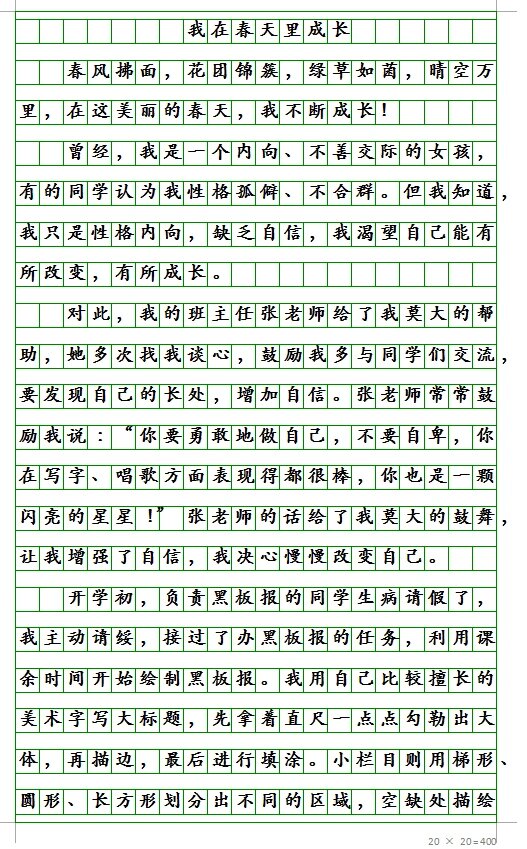 我在春天里成长
春风拂面，花团锦簇，绿草如茵，晴空万
里，在这美丽的春天，我不断成长！
曾经，我是一个内向、不善交际的女孩，
有的同学认为我性格孤僻、不合群。但我知道，
我只是性格内向，缺乏自信，我渴望自己能有
所改变，有所成长。
对此，我的班主任张老师给了我莫大的帮
助，她多次找我谈心，鼓励我多与同学们交流，
要发现自己的长处，增加自信。张老师常常鼓
励我说：“你要勇敢地做自己，不要自卑，你
在写字、唱歌方面表现得都很棒，你也是一颗
闪亮的星星！”张老师的话给了我莫大的鼓舞，
让我增强了自信，我决心慢慢改变自己。
开学初，负责黑板报的同学生病请假了，
我主动请绥，接过了办黑板报的任务，利用课
余时间开始绘制黑板报。我用自己比较擅长的
美术字写大标题，先拿着直尺一点点勾勒出大
体，再描边，最后进行填涂。小栏目则用梯形、
圆形、长方形划分出不同的区域，空缺处描绘
20 × 20=400